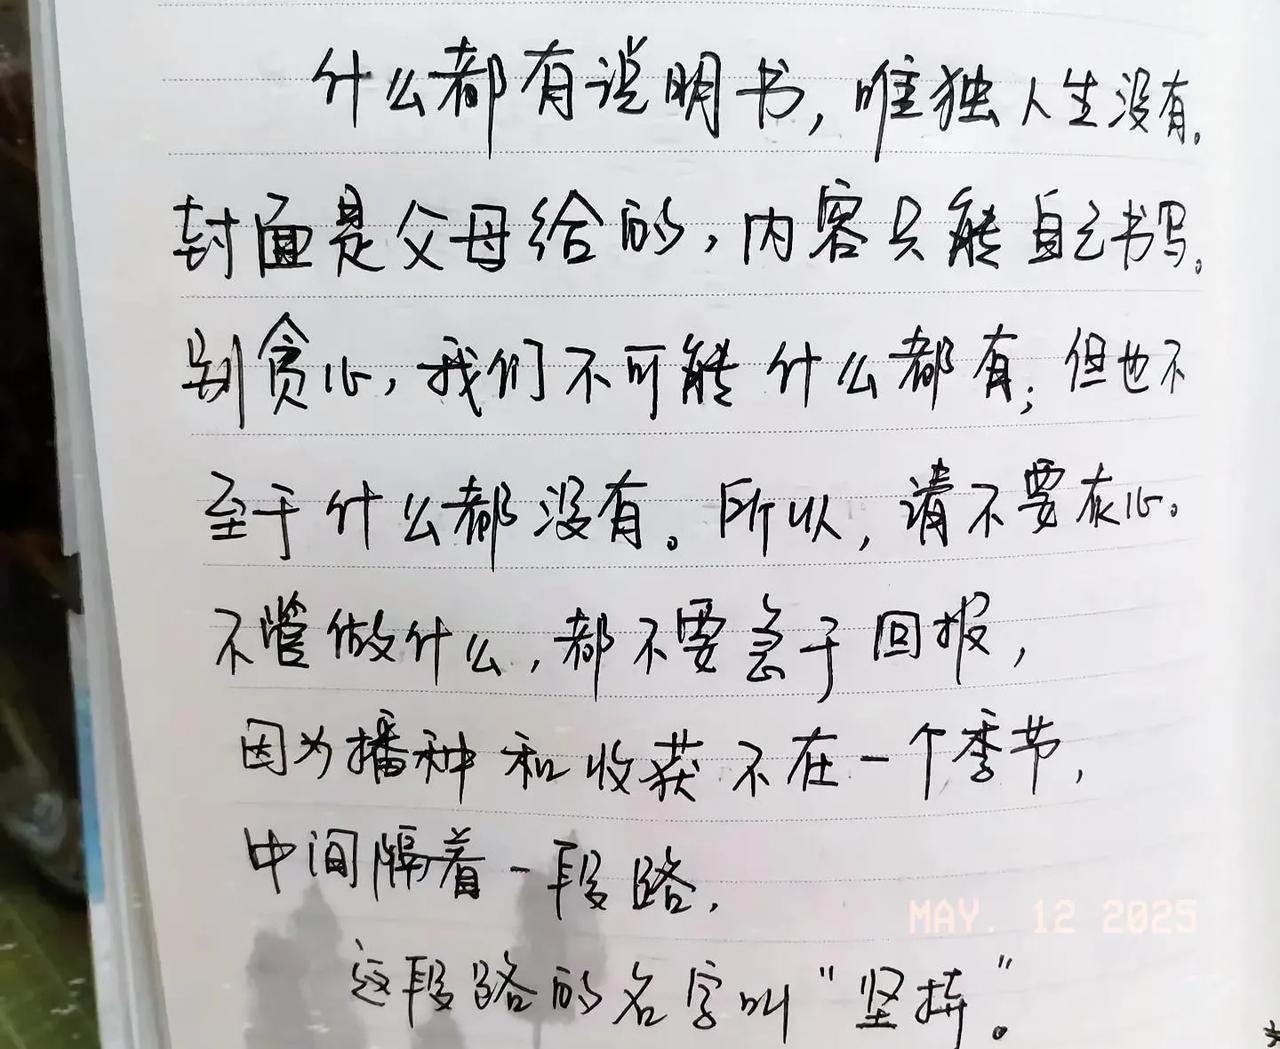 什么都有说明书，唯独人生没有。
封面是父母给的，内容只能自己书写。
别贪心，我们不可能什么都有；但也不
至于什么都没有。所以，请不要在心。
不管做什么，都不要急于回报，
因为播种和收获不在一个季节，
中间隔着一段路，
MAY. 12 2025
这段路的名字叫“坚持”。